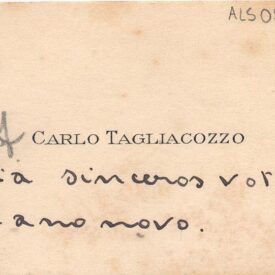 ALS 05
CARLO TAGLIACOZZO
ia sinceros vot
ano novo.